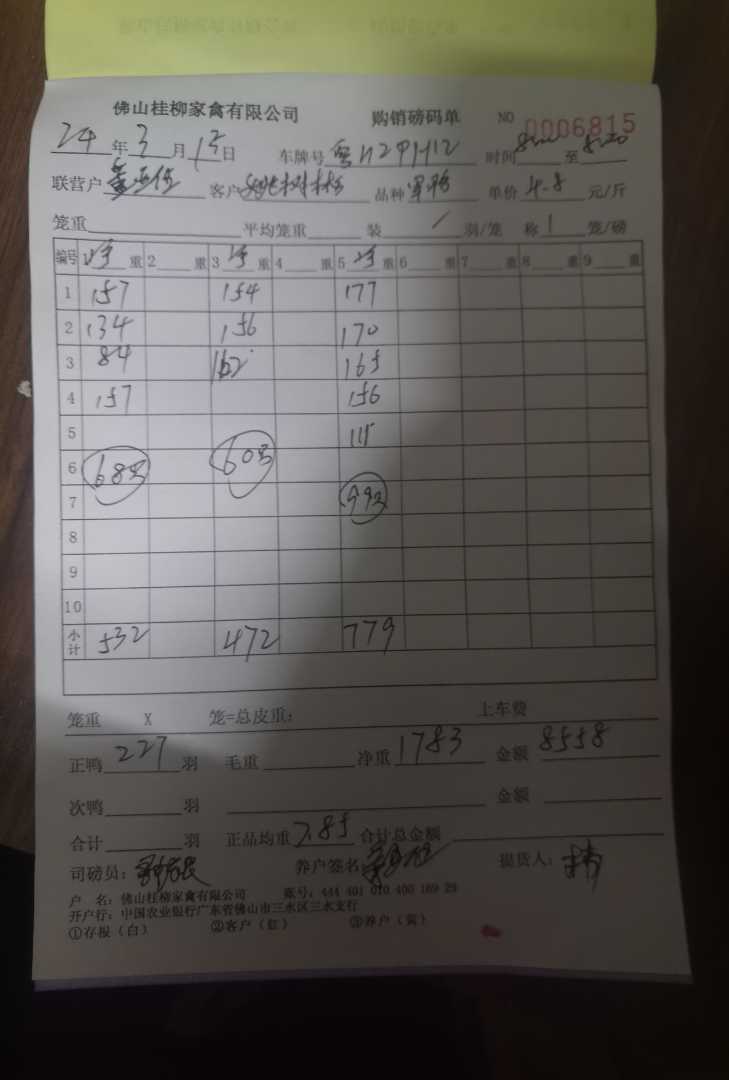 佛山桂柳家禽有限公司 购销磅码单 NO 0006815
24年3月15日 车牌号 粤H29H12 时间 至
联营户 客户 品种 单价 4.8 元/斤
笼重 平均笼重 装 / 羽/笼 称 1 笼/磅
编号 1 净 重 2 重 3 净 重 4 重 5 净 重 6 重 7 重 8 重 9 重
1 157 154 177
2 134 156 170
3 84 162 165
4 157 156
5 111
6 68只 60只
7 99只
8
9
10
小计 532 472 779
笼重 X 笼=总皮重: 上车费
正鸭 227 羽 毛重 净重 1783 金额 8558
次鸭 羽 金额
合计 羽 正品均重 7.85 合计总金额
司磅员: 养户签名: 提货人:
户 名: 佛山桂柳家禽有限公司 账号: 444 401 010 400 169 29
开户行: 中国农业银行广东省佛山市三水区三水支行
①存根(白) ②客户(红) ③养户(黄)